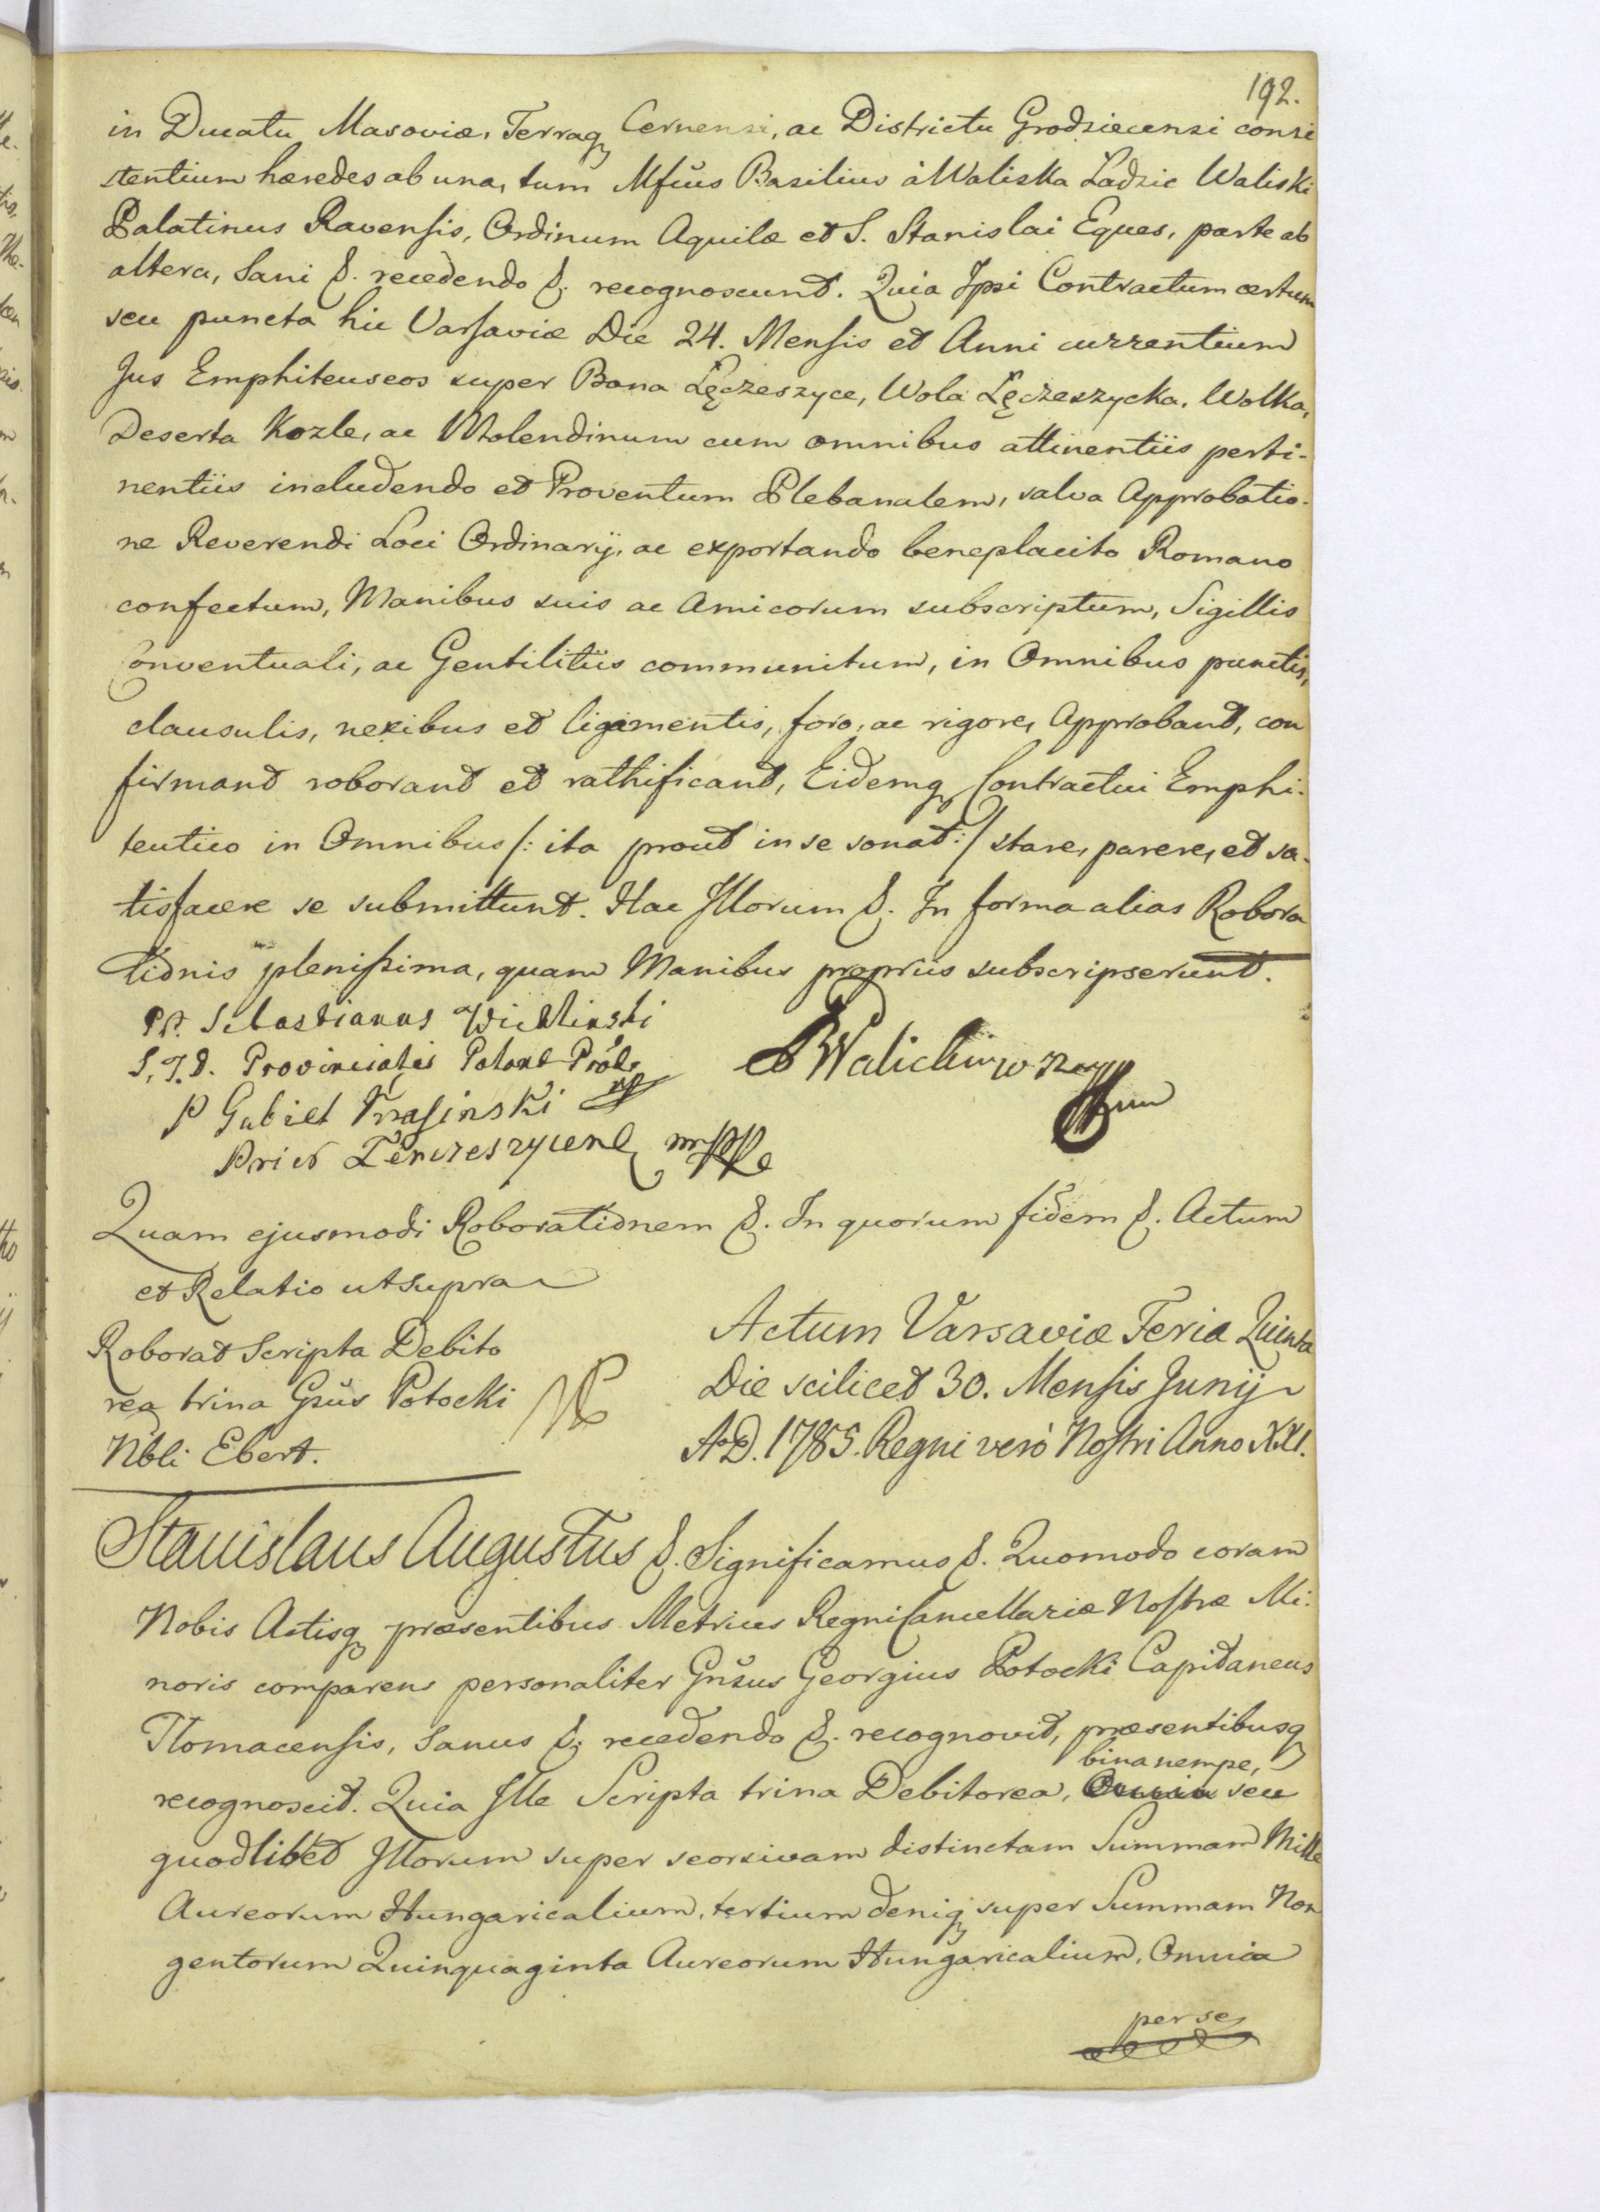 192.
in Ducatu Masoviæ, Terraq Cernensi, ac Districtu Grodziecensi consi
stentium hæredes ab una, tum Mfcus Basilius à Waliska Ladzic Waliski
Palatinus Ravensis, Ordinum Aquilæ et S. Stanislai Eques, parte ab
altera, Sani &. recedendo &. recognoscunt. Quia Ipsi Contractum certum
seu puncta hic Varsaviæ Die 24. Mensis et Anni currentium
Jus Emphiteuseos super Bona Lęczeszyce, Wola Lęczeszycka, Wolka,
Deserta Kozle, ac Molendinum cum omnibus attinentiis perti-
nentiis includendo et Proventum Plebanalem, salva Approbatio-
ne Reverendi Loci Ordinarij, ac exportando beneplacito Romano
confectum, Manibus suis ac Amicorum subscriptum, Sigillis
Conventuali, ac Gentilitiis communitum, in Omnibus punctis,
clausulis, nexibus et ligamentis, foro, ac rigore, Approbant, con
firmant roborant et rathificant, Eidemq Contractui Emphi-
teutico in Omnibus /: ita prout in se sonat :/ stare, parere, et sa-
tisfacere se submittunt. Hac Illorum &. In forma alias Robora
tionis plenissima, quam Manibus propriis subscripserunt.
Sebastianus
S. T. D. Provincialis
P Gabiel Krasinski
Prior
Quam ejusmodi Roborationem &. In quorum fidem &. Actum
et Relatio ut supra
Roborat Scripta Debito
rea trina Gsus Potocki
Nbli Ebert.
Actum Varsaviæ Feria Quinta
Die scilicet 30. Mensis Junij
A.D. 1785. Regni verò Nostri Anno XXI.
Stanislaus Augustus &. Significamus &. Quomodo coram
Nobis Actisq præsentibus Metrices Regni Cancellariæ Nostræ Mi-
noris comparens personaliter Gnsus Georgius Potocki Capitaneus
Tlomacensis, Sanus &. recedendo &. recognovit, præsentibusq
bina nempe,
recognoscit. Quia Ille Scripta trina Debitorea, seu
quodlibet Illorum super seorsivam distinctam Summam Mille
Aureorum Hungaricalium, tertium deniq super Summam Non
gentorum Quinquaginta Aureorum Hungaricalium, Omnia
per se